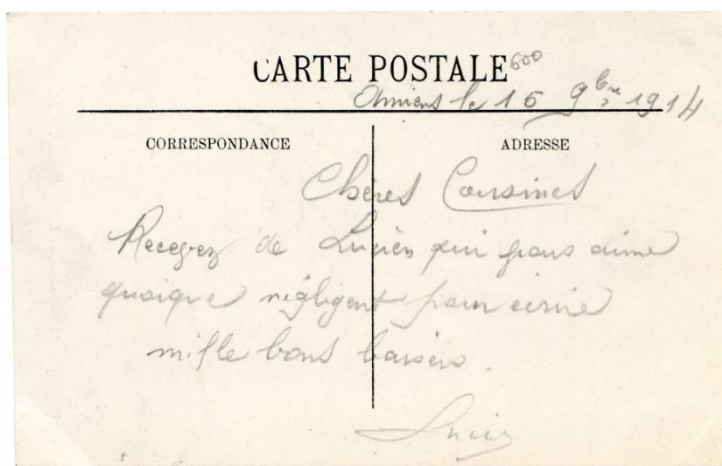 CARTE POSTALE 600
Amiens le 15 9bre 1914
CORRESPONDANCE
ADRESSE
Chères Cousines
Recevez de Lucien qui vous aime
quoique négligent pour écrire
mille bons baisers.
Lucien